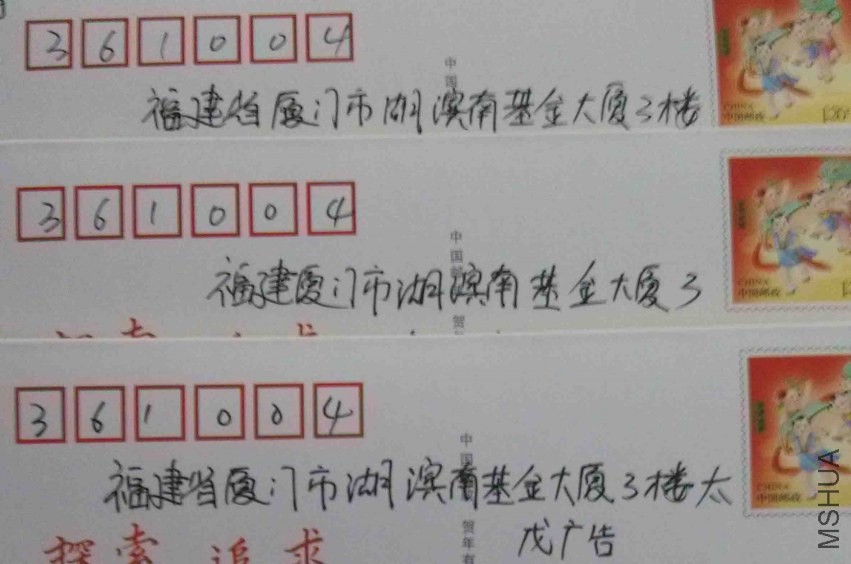 361004
中国
福建省厦门市湖滨南基金大厦3楼
CHINA
中国邮政
361004
中国邮
福建厦门市湖滨南基金大厦3
贺年
CHINA
中国邮政
361004
中国
福建省厦门市湖滨南基金大厦3楼太
戊广告
贺年有
探索 追求
CHINA
中国邮政
MSHUA